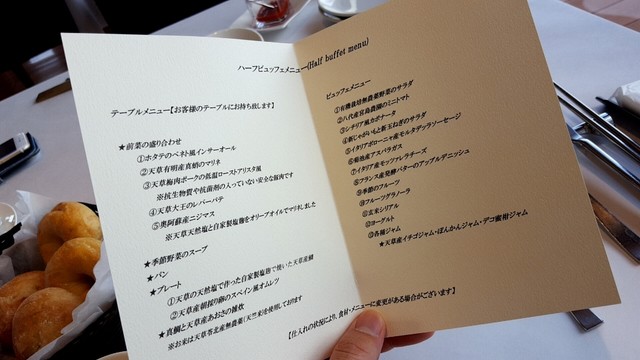 ハーフビュッフェメニュー(Half buffet menu)
テーブルメニュー【お客様のテーブルにお持ち致します】
★前菜の盛り合わせ
①ホタテのベネト風インサオール
②天草有明産真鯛のマリネ
③天草梅肉ポークの低温ローストアリスタ風
※抗生物質や抗菌剤の入っていない安全な豚肉です
④天草大王のレバーパテ
⑤奥阿蘇産ニジマス
※天草天然塩と自家製塩麹をオリーブオイルでマリネしました
★季節野菜のスープ
★パン
★プレート
①天草の天然塩で作った自家製塩麹で焼いた天草産鯛
②天草産朝採り卵のスペイン風オムレツ
★真鯛と天草産あおさの雑炊
※お米は天草香北産無農薬(天竺米)を使用しております
ビュッフェメニュー
①有機栽培無農薬野菜のサラダ
②八代産宮島農園のミニトマト
③シチリア風カポナータ
④新じゃがいもと新玉ねぎのサラダ
⑤イタリアボローニャ産モルタデッラソーセージ
⑥菊池産アスパラガス
⑦イタリア産モッツァレラチーズ
⑧フランス産発酵バターのアップルデニッシュ
⑨季節のフルーツ
⑩フルーツグラノーラ
⑪玄米シリアル
⑫ヨーグルト
⑬各種ジャム
★天草産イチゴジャム・ぽんかんジャム・デコ蜜柑ジャム
【仕入れの状況により、食材・メニューに変更がある場合がございます】